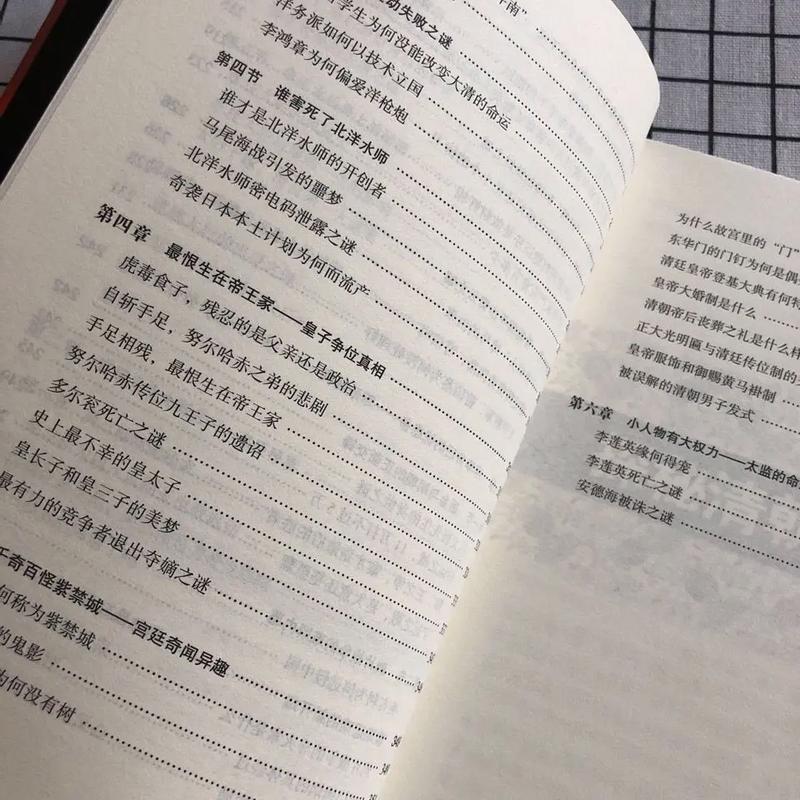 动失败之谜
学生为何没能改变大清的命运
洋务派如何以技术立国
李鸿章为何偏爱洋枪炮
第四节 谁害死了北洋水师
谁才是北洋水师的开创者
马尾海战引发的噩梦
北洋水师密电码泄露之谜
奇袭日本本土计划为何而流产
第四章 最恨生在帝王家——皇子争位真相
虎毒食子，残忍的是父亲还是政治
自斩手足，努尔哈赤之弟的悲剧
手足相残，最恨生在帝王家
努尔哈赤传位九王子的遗诏
多尔衮死亡之谜
史上最不幸的皇太子
皇长子和皇三子的美梦
最有力的竞争者退出夺嫡之谜
千奇百怪紫禁城——宫廷奇闻异趣
何称为紫禁城
的鬼影
为何没有树
为什么故宫里的“门”
东华门的门钉为何是偶
清廷皇帝登基大典有何特
皇帝大婚制是什么
清朝帝后丧葬之礼是什么样
正大光明匾与清廷传位制的
皇帝服饰和御赐黄马褂制
被误解的清朝男子发式
第六章 小人物有大权力——太监的命
李莲英缘何得宠
李莲英死亡之谜
安德海被诛之谜